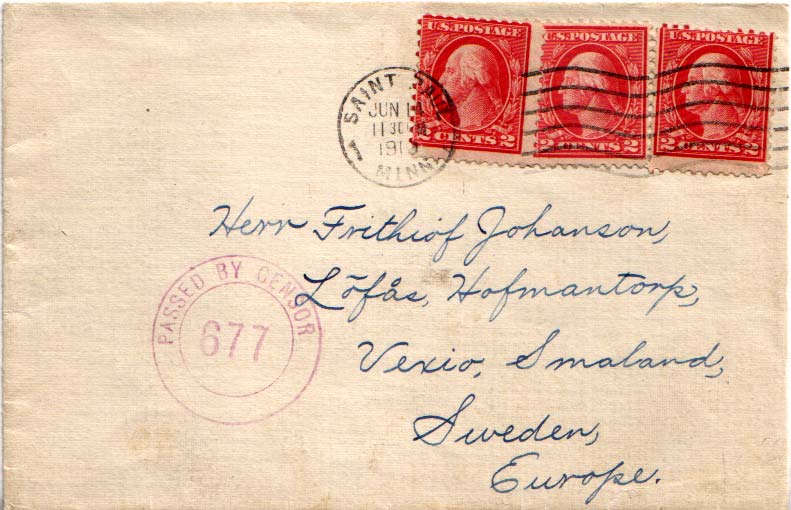 U.S. POSTAGE
2 CENTS 2
U.S. POSTAGE
2 CENTS 2
U.S. POSTAGE
2 CENTS 2
SAINT PAUL
JUN
11 30
MINN.
1
Herr Frithiof Johanson,
Löfås, Hofmantorp,
Vexio, Smaland,
Sweden,
Europe.
PASSED BY CENSOR
677